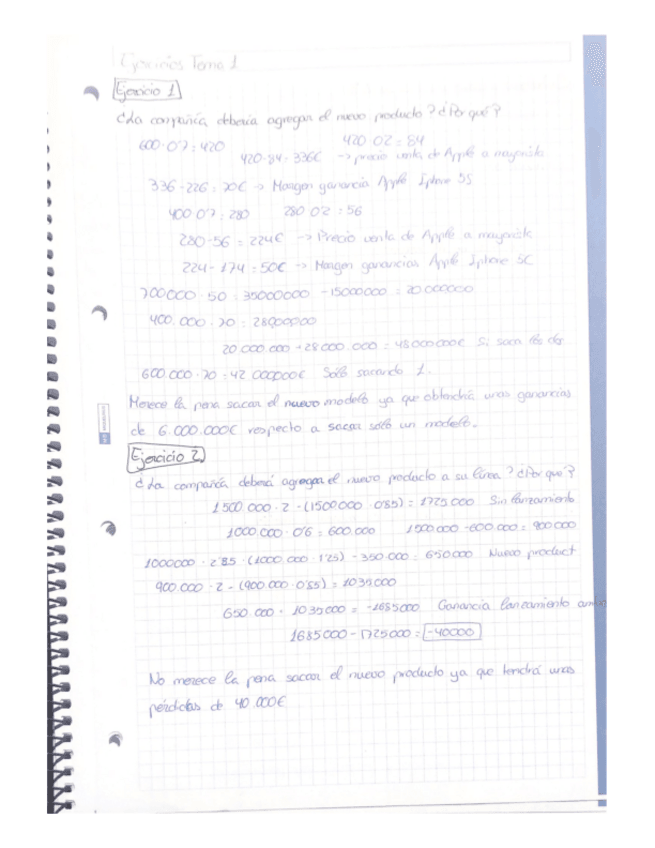 Ejercicios Tema 1
Ejercicio 1
¿La compañía debería agregar el nuevo producto? ¿Por qué?
600·0'7 = 420 420·0'2 = 84
420-84 = 336€ → precio venta de Apple a mayorista
336-226 = 70€ → Margen ganancia Apple Iphone 5S
400·0'7 = 280 280·0'2 = 56
280-56 = 224€ → Precio venta de Apple a mayorista
224-174 = 50€ → Margen ganancias Apple Iphone 5C
700000·50 = 35000000 -15000000 = 20000000
400.000·70 = 28000000
20.000.000+28.000.000 = 48000000€ Si saca los dos
600.000·70 = 42000000€ Sólo sacando 1.
Merece la pena sacar el nuevo modelo ya que obtendrá unas ganancias
de 6.000.000€ respecto a sacar sólo un modelo.
Ejercicio 2
¿La compañía deberá agregar el nuevo producto a su línea? ¿Por qué?
1500.000·2-(1500000·0'85) = 1725000 Sin lanzamiento
1000.000·0'6 = 600.000 1500.000-600.000 = 900000
1000000·2'85-(1000.000·1'25)-350.000 = 650000 Nuevo product
900.000·2-(900.000·0'85) = 1035000
650.000+1035000 = -1685000 Ganancia lanzamiento
1685000-1725000 = -40000
No merece la pena sacar el nuevo producto ya que tendrá unas
pérdidas de 40.000€